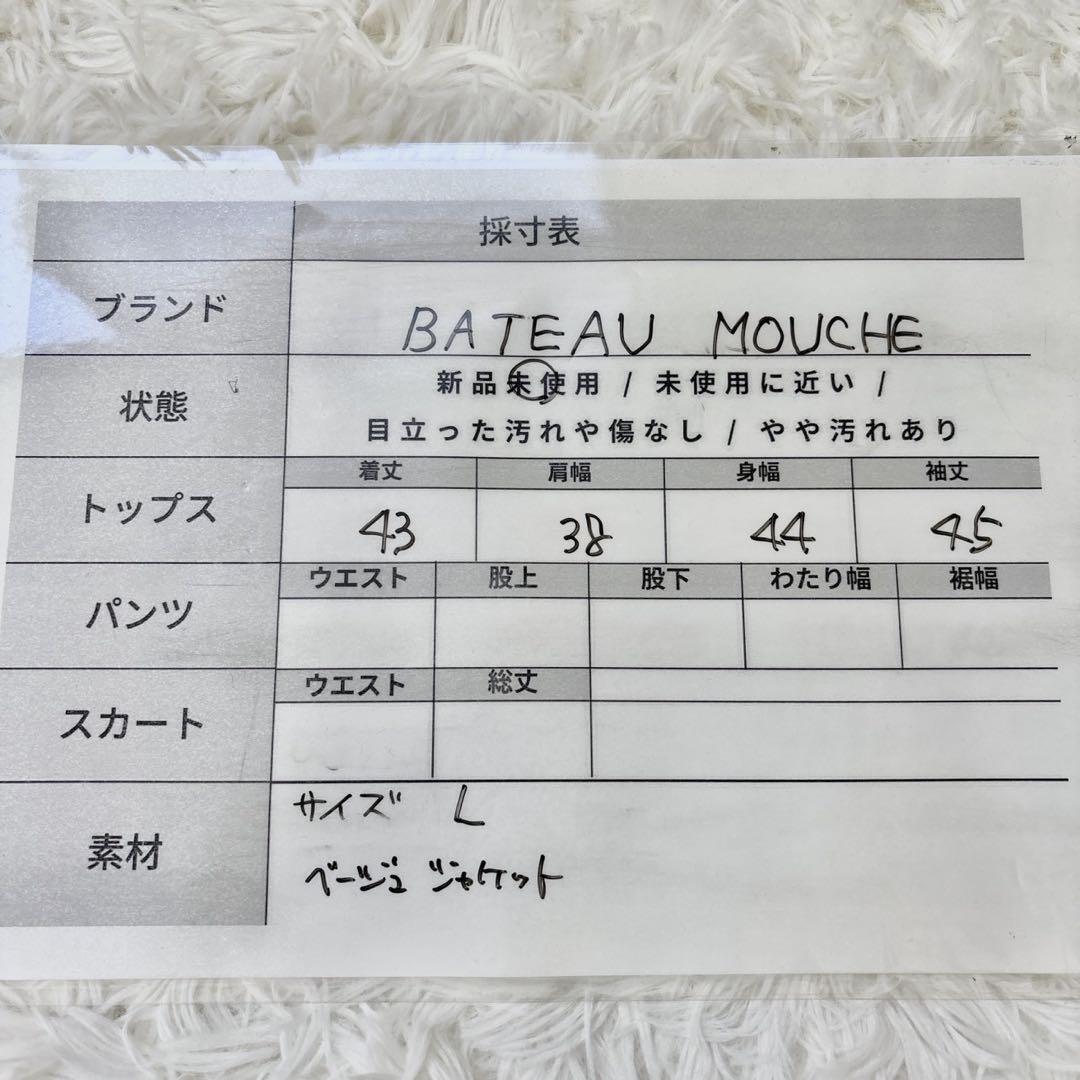 採寸表
ブランド BATEAU MOUCHE
状態 新品未使用 / 未使用に近い /
目立った汚れや傷なし / やや汚れあり
トップス 着丈 肩幅 身幅 袖丈
43 38 44 45
パンツ ウエスト 股上 股下 わたり幅 裾幅
スカート ウエスト 総丈
素材 サイズ L
ベージュ ジャケット